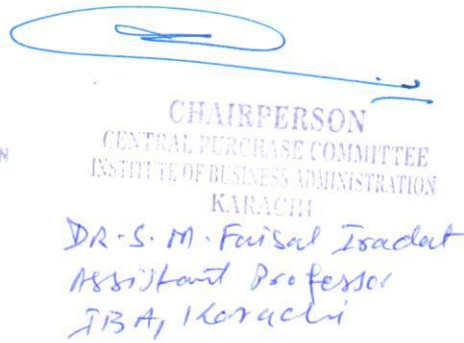 CHAIRPERSON
CENTRAL PURCHASE COMMITTEE
INSTITUTE OF BUSINESS ADMINISTRATION
KARACHI
N
DR. S. M. Faisal Iradat
Assistant Professor
IBA, Karachi